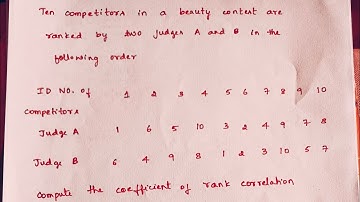 Ten competitors in a beauty contest are
ranked by two judges A and B in the
following order
ID NO. of 1 2 3 4 5 6 7 8 9 10
competitors
Judge A 1 6 5 10 3 2 4 9 7 8
Judge B 6 4 9 8 1 2 3 10 5 7
compute the coefficient of rank correlation